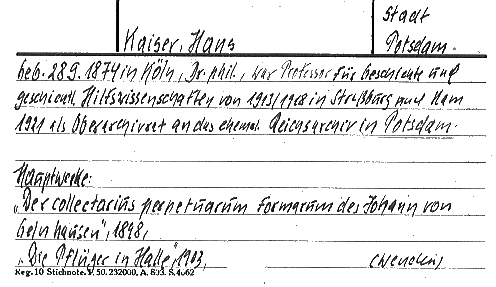 Stadt
Kaiser, Hans
Potsdam.
geb. 28.9.1874 in Köln, Dr. phil., war Professor für Geschichte und
geschichtl. Hilfswissenschaften von 1913/1918 in Straßburg und kam
1921 als Oberarchivrat an das ehemal. Reichsarchiv in Potsdam.
Hauptwerke:
„Der collectarius perpetuarum formarum des Johann von
Gelnhausen", 1898,
„Die Pflüger in Halle", 1903,
(Wenden)
Reg. 10 Stichnote. V. 50. 232000. A. 803. S. 4662